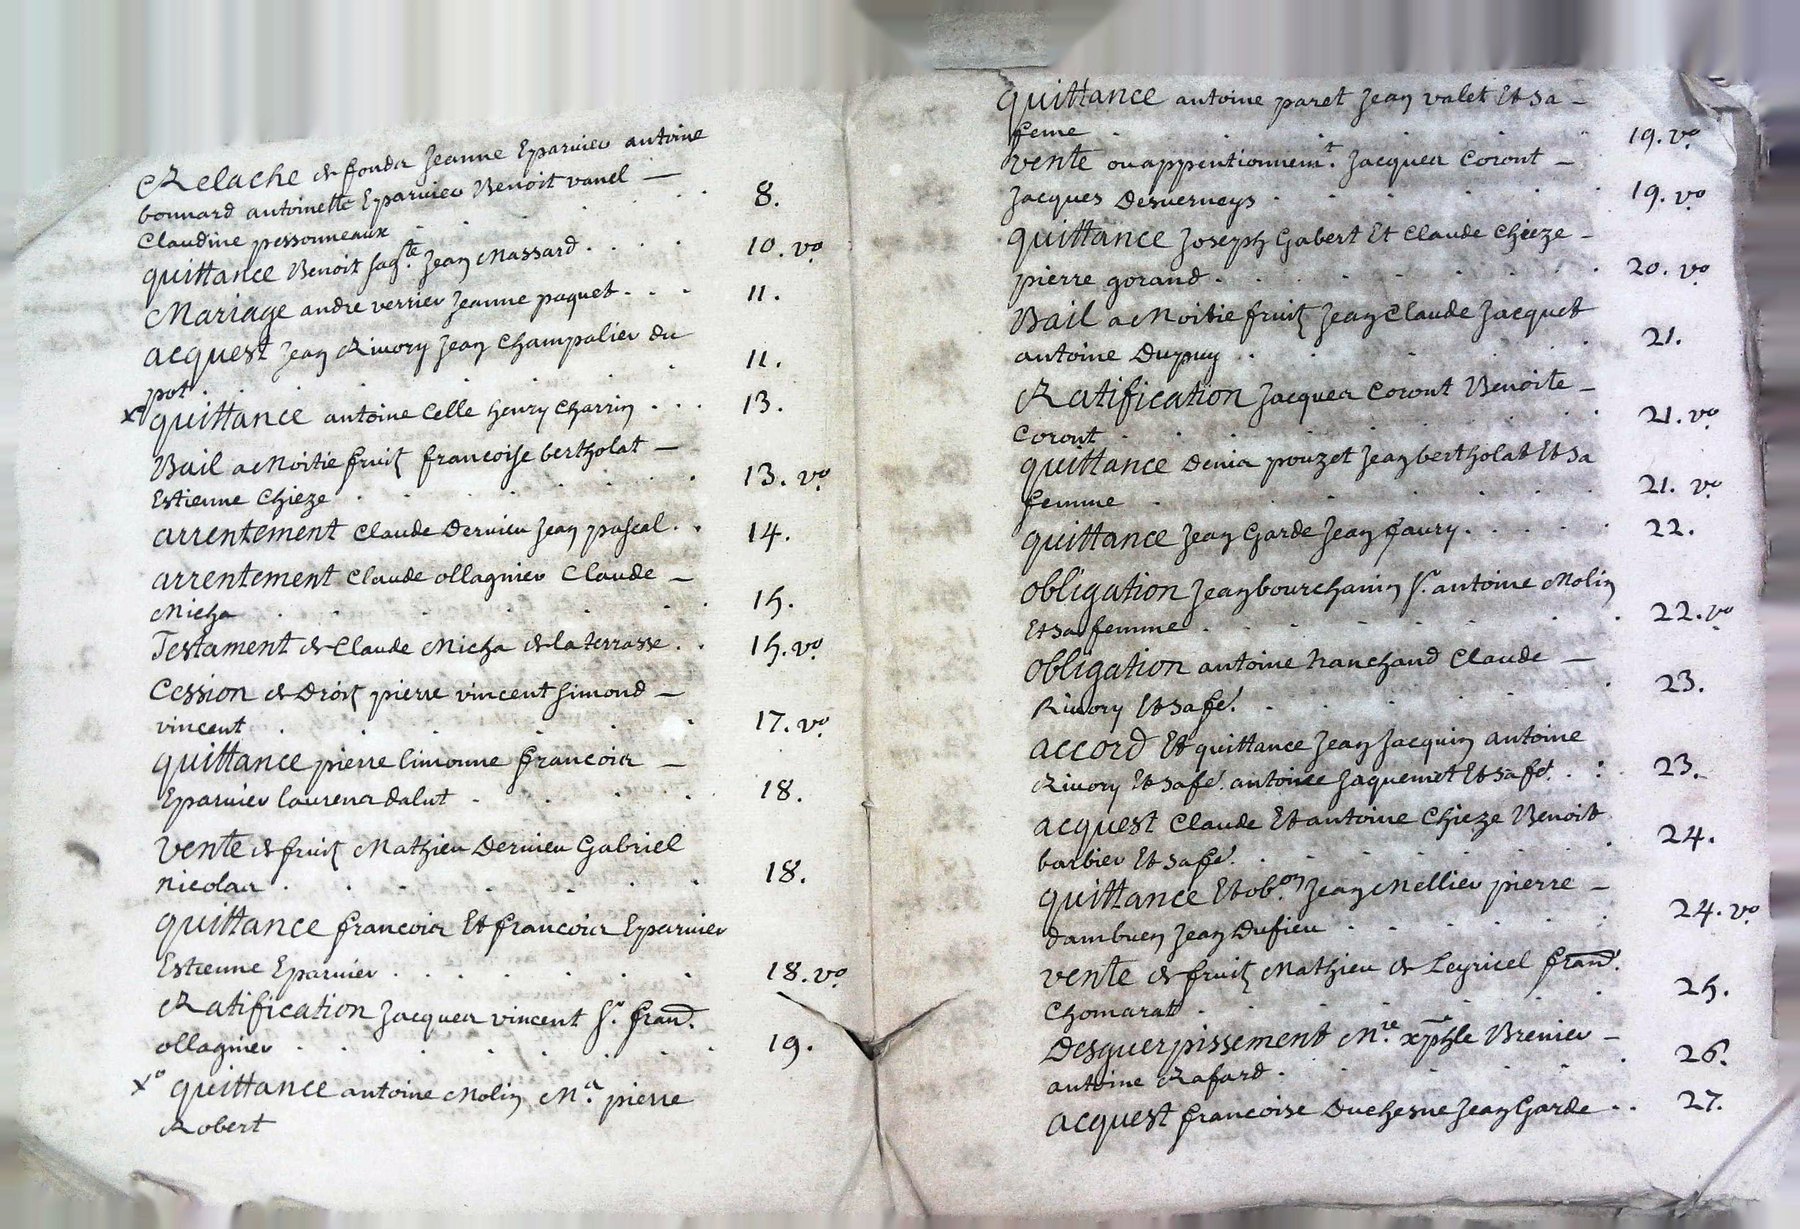 Relache de fonds Jeanne Eparvier antoine
bonnard antoinette Eparvier Benoit vanel —
Claudine pessonneaux . . . 8.
quittance Benoit sag.te Jean Massard . . . . 10. vo
Mariage andre verrier Jeanne paquet . . . 11.
acquest Jean Rivory Jean Champalier du
pot . . . 11.
xo quittance antoine Celle henry Charrin . . . 13.
Bail a Moitie fruits francoise bertholat —
Estienne Chieze . . . 13. vo
arrentement Claude Dervieu Jean pascal . . 14.
arrentement Claude ollagnier Claude —
Micha . . . 15.
Testament de Claude Micha de la terrasse . . 15. vo
Cession de Droits pierre vincent simond —
vincent . . . 17. vo
quittance pierre limonne francois —
Eparvier laurens dalut . . . 18.
Vente de fruits Mathieu Dervieu Gabriel
nicolas . . . 18.
quittance francois Et francois Eparvier
Estienne Eparvier . . . 18. vo
Ratification Jacques vincent sr. frand.
ollagnier . . . 19.
xo quittance antoine Molin Me. pierre
Robert
quittance antoine paret Jean valet Et sa —
feme . . . 19. vo
vente ou appentionnemt. Jacques Coront —
Jacques Desverneys . . . 19. vo
quittance Joseph Gabert Et Claude Chieze —
pierre gorand . . . 20. vo
Bail a Moitie fruits Jean Claude Jacquet
antoine Dupuy . . . 21.
Ratification Jacques Coront Benoite —
Coront . . . 21. vo
quittance Denis pouzet Jean bertholat Et sa
femme . . . 21. vo
quittance Jean Garde Jean faury . . . 22.
obligation Jean bourchanin sr. antoine Molin
Et sa femme . . . 22. vo
obligation antoine hanchand Claude —
Rivory Et sa fe. . . . 23.
accord Et quittance Jean Jacquin antoine
Rivory Et sa fe. antoine Jaquemet Et sa fe. . . 23.
acquest Claude Et antoine Chieze Benoit
barbier Et sa fe. . . . 24.
quittance Et ob.on Jean Mellier pierre —
dambuen Jean Dufieu . . . 24. vo
vente de fruits Mathieu de Leyricel frand.
Chomarat . . . 25.
Desguerpissement Mre. xphle Brenier —
antoine Rafard . . . 26.
acquest francoise Duchesne Jean Garde . . 27.